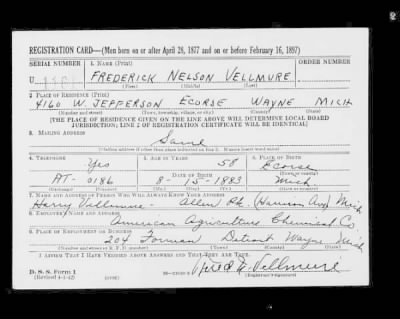 REGISTRATION CARD—(Men born on or after April 28, 1877 and on or before February 16, 1897)
SERIAL NUMBER 1. NAME (Print) ORDER NUMBER
U FREDERICK NELSON VELLMURE
(First) (Middle) (Last)
2. PLACE OF RESIDENCE (Print)
4160 W. JEFFERSON ECORSE WAYNE MICH
(Number and street) (Town, township, village, or city) (County) (State)
[THE PLACE OF RESIDENCE GIVEN ON THE LINE ABOVE WILL DETERMINE LOCAL BOARD
JURISDICTION; LINE 2 OF REGISTRATION CERTIFICATE WILL BE IDENTICAL]
3. MAILING ADDRESS
Same
[Mailing address if other than place indicated on line 2. If same insert word same]
4. TELEPHONE 5. AGE IN YEARS 6. PLACE OF BIRTH
Yes 58 Ecorse
DATE OF BIRTH (Town or county)
AT- 0186 8-15-1883 Mich
(Exchange) (Number) (Mo.) (Day) (Yr.) (State or country)
7. NAME AND ADDRESS OF PERSON WHO WILL ALWAYS KNOW YOUR ADDRESS
Harry Vellmure - Allen Pk. Mich
8. EMPLOYER'S NAME AND ADDRESS
American Agriculture Chemical Co
9. PLACE OF EMPLOYMENT OR BUSINESS
204 Forman Detroit Wayne Mich
(Number and street or R. F. D. number) (Town) (County) (State)
I AFFIRM THAT I HAVE VERIFIED ABOVE ANSWERS AND THAT THEY ARE TRUE.
D. S. S. Form 1
(Revised 4-1-42) Vellmure
(Registrant's signature)